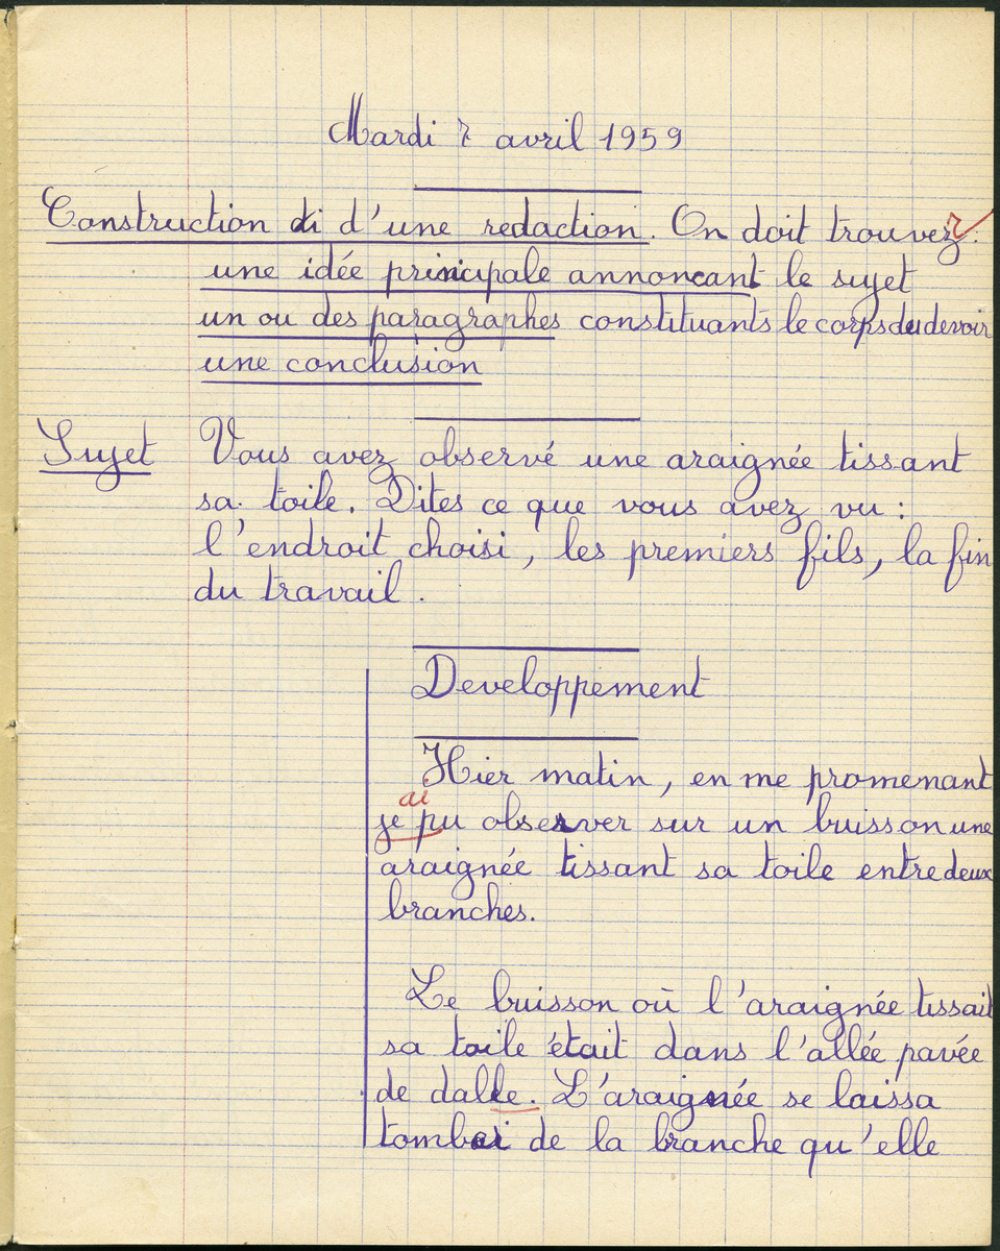 Mardi 7 avril 1959
Construction di d'une redaction. On doit trouvez.
une idée principale annoncant le sujet
un ou des paragraphes constituants le corps du devoir
une conclusion
Sujet Vous avez observé une araignée tissant
sa toile. Dites ce que vous avez vu :
l'endroit choisi, les premiers fils, la fin
du travail.
Developpement
Hier matin, en me promenant
ai
je pu observer sur un buisson une
araignée tissant sa toile entre deux
branches.
Le buisson où l'araignée tissait
sa toile était dans l'allée pavée
de dalle. L'araignée se laissa
de la branche qu'elle